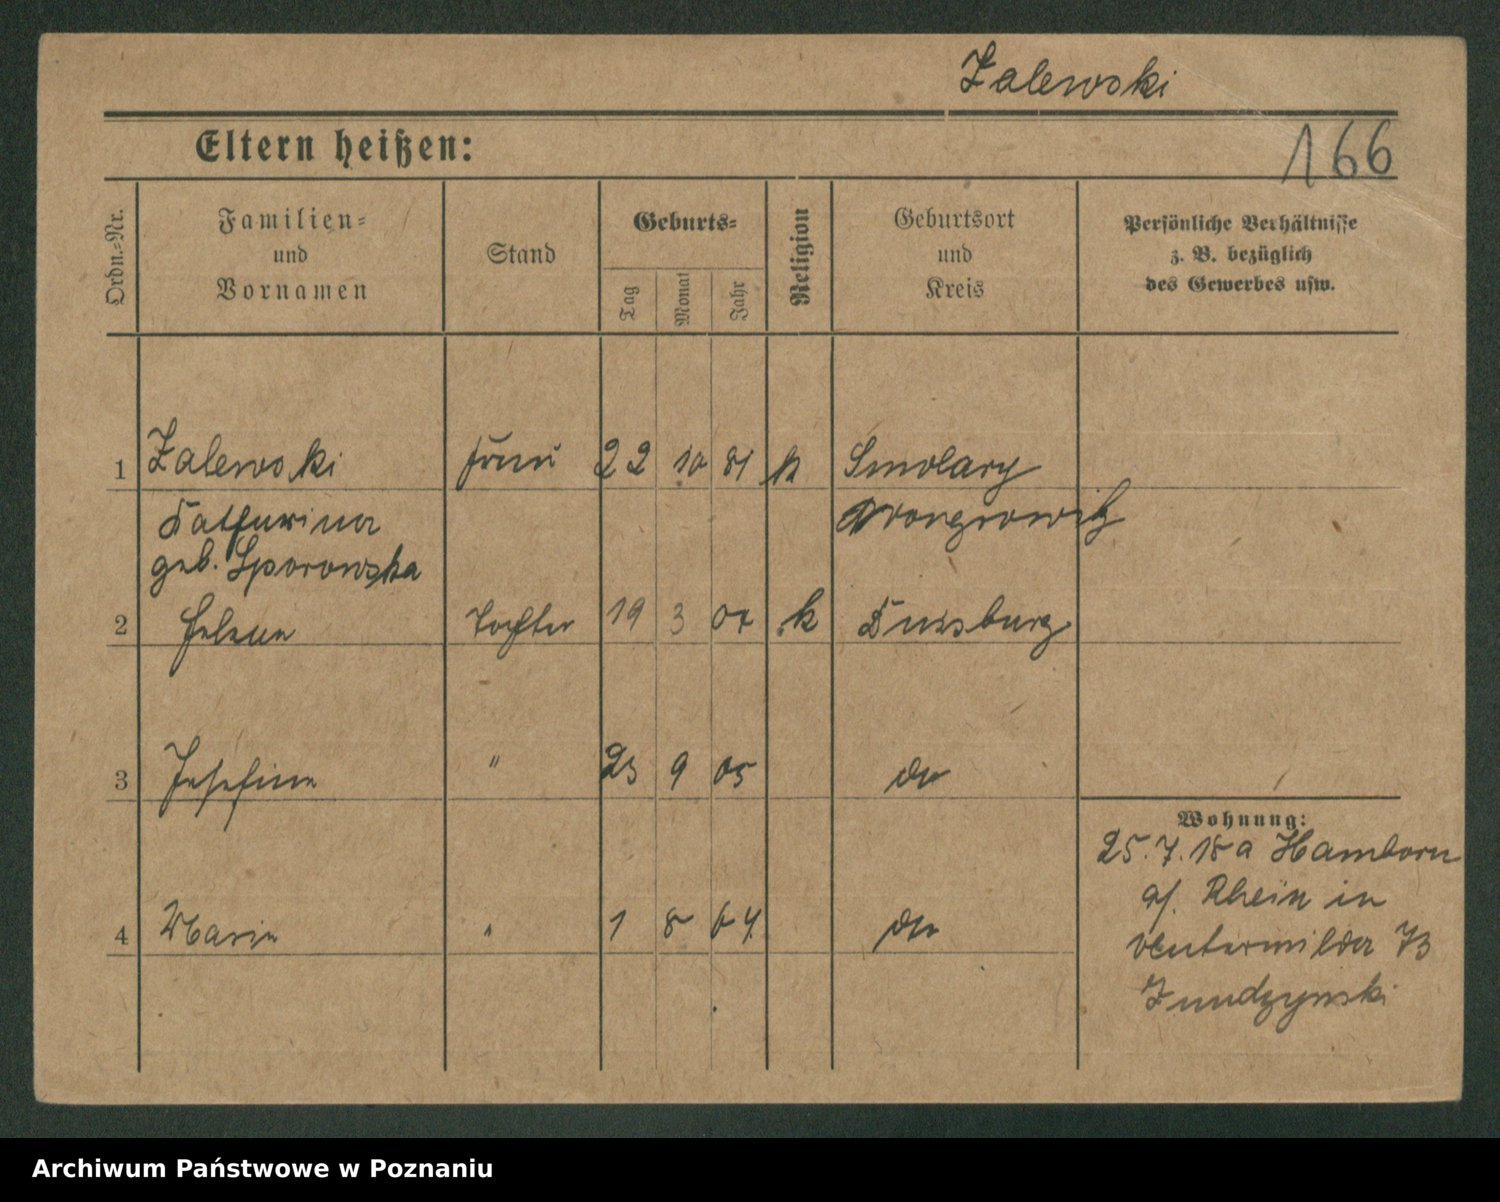 Zalewski
166
Eltern heißen:
Ordn.-Nr.
Familien-
und
Vornamen
Stand
Geburts-
Tag
Monat
Jahr
Religion
Geburtsort
und
Kreis
Persönliche Verhältnisse
z. B. bezüglich
des Gewerbes usw.
1 Zalewski Frau 22 10 81 k Smolary
Katharina Wongrowitz
geb. Sporowska
2 Helene Tochter 19 3 04 k Duisburg
3 Josefine " 25 9 05 do
4 Marie " 1 8 do
Wohnung:
25.7.18 a Hamborn
a/. Rhein in
73